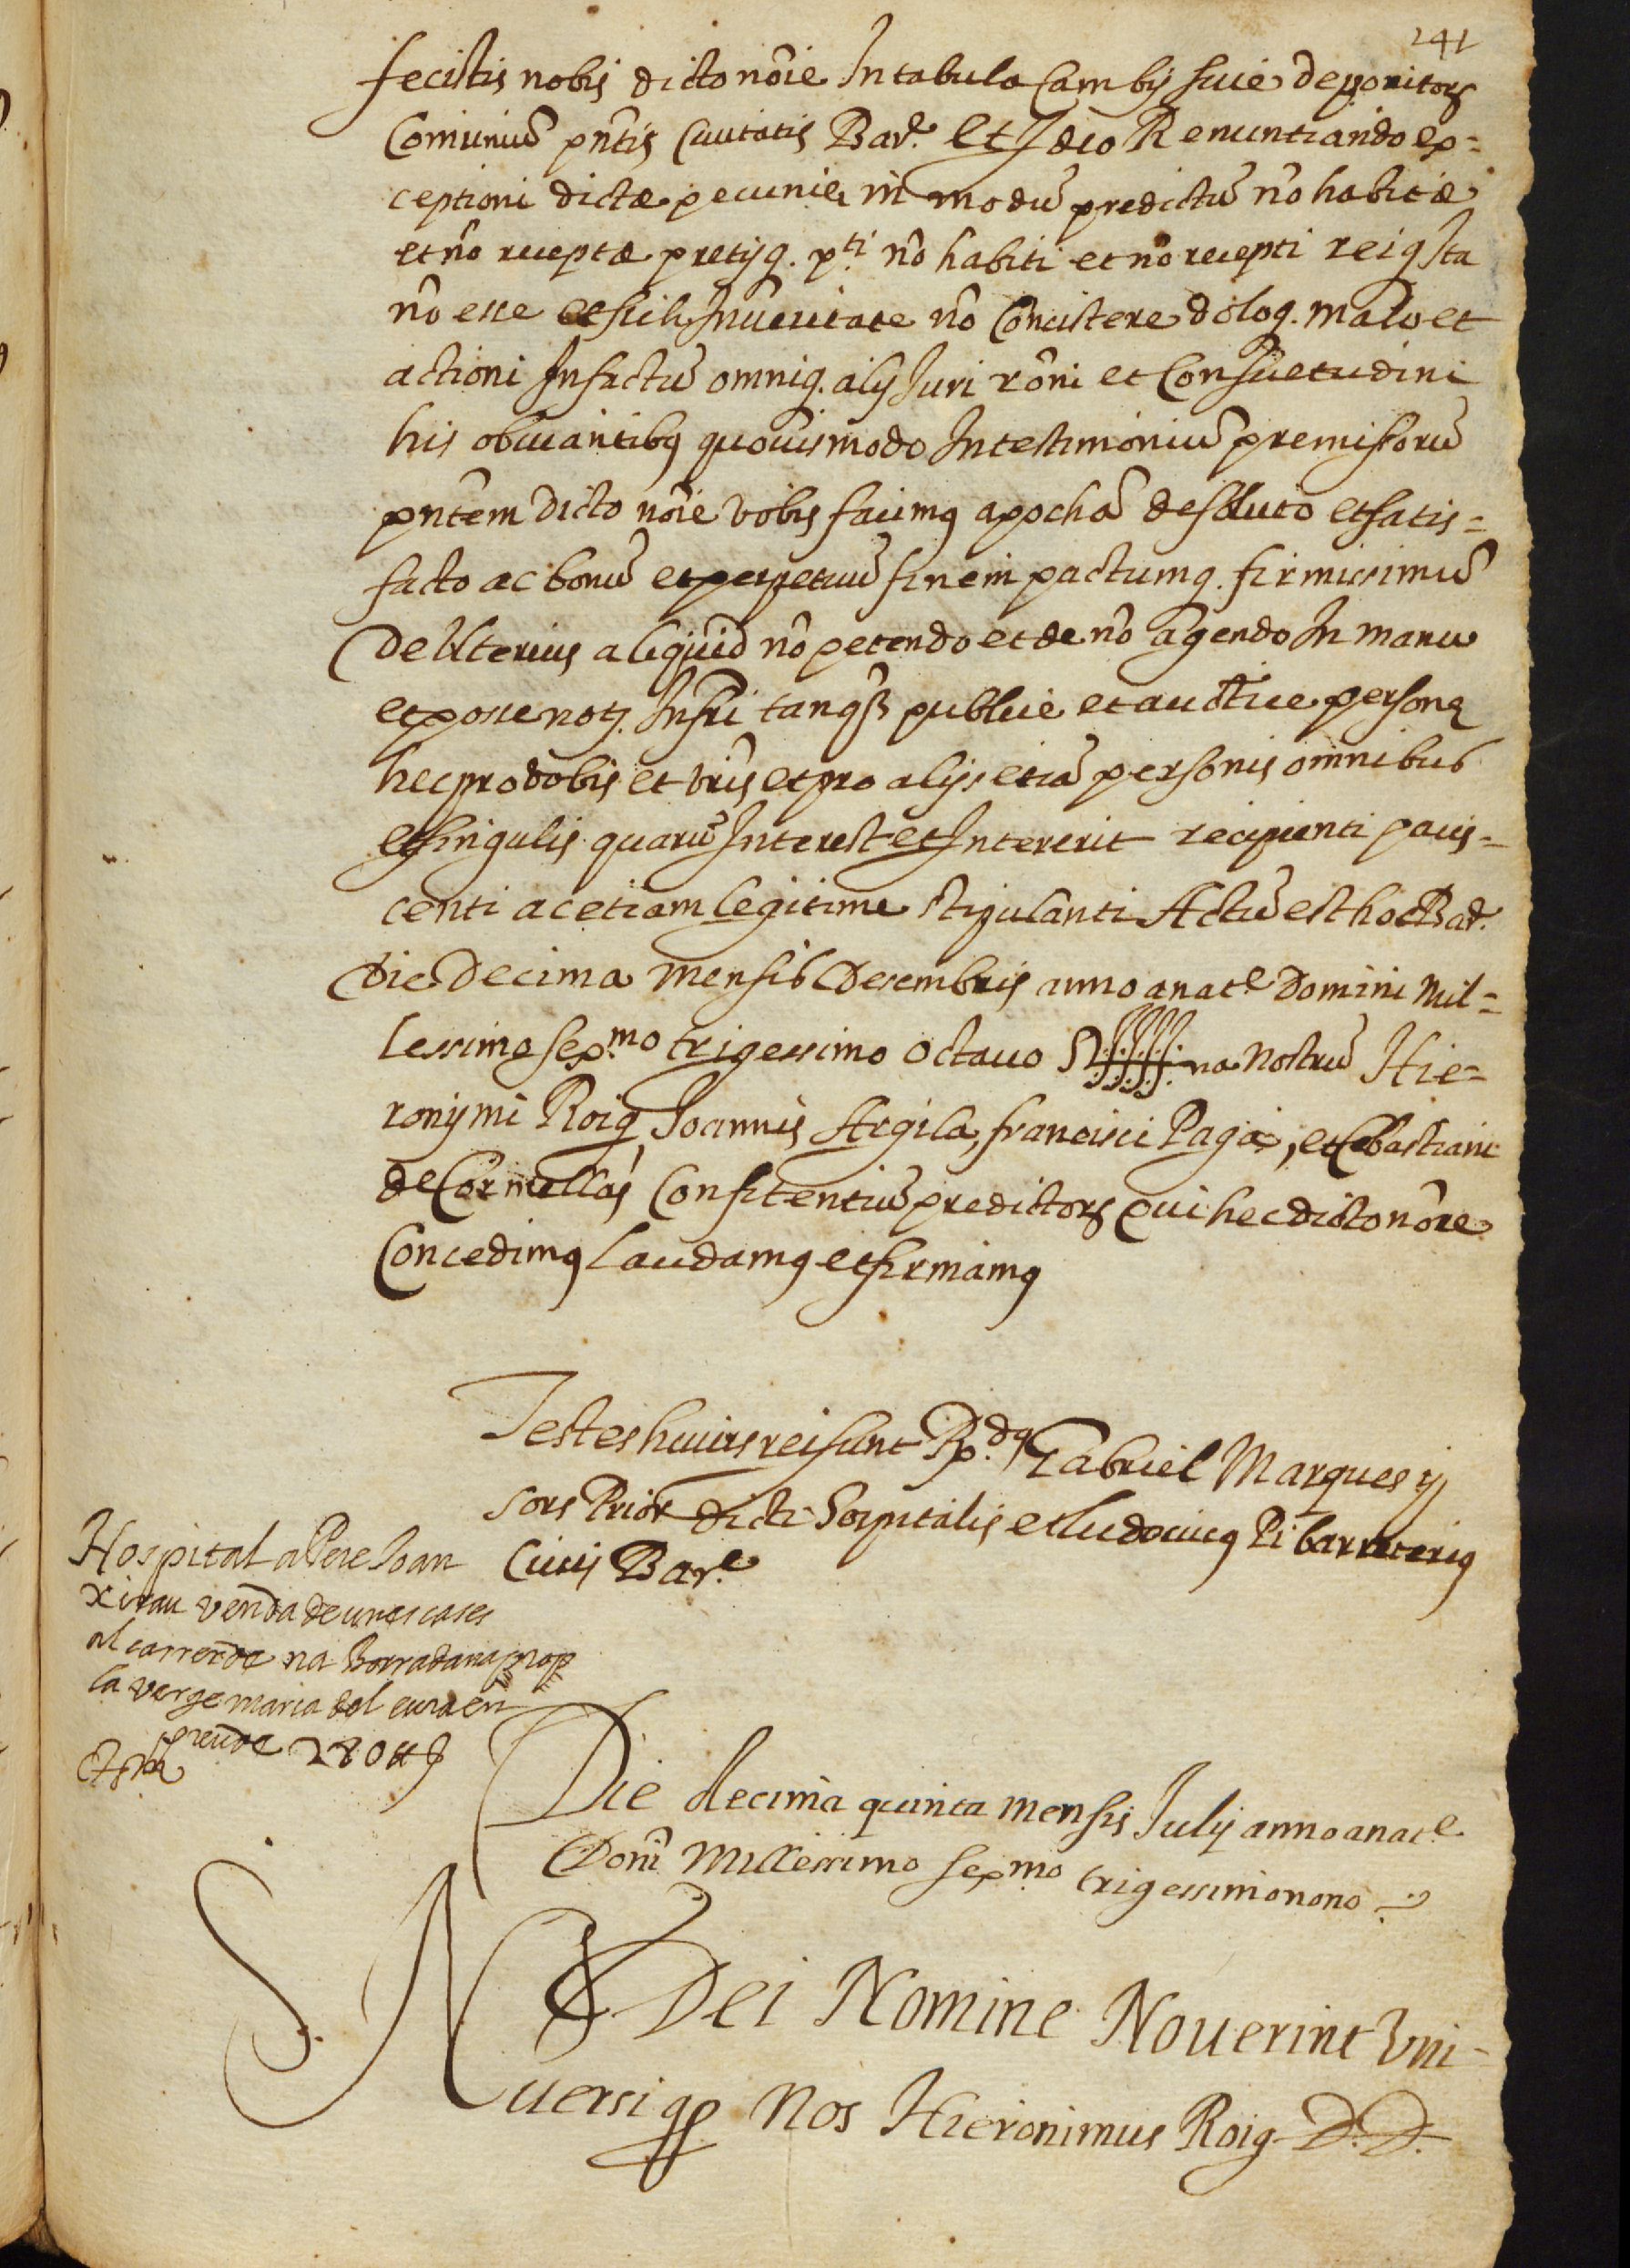 241
fecistis nobis dicto nõie In tabula Cambij sive depositorꝝ
Comuniũ pñtis Civitatis Barᵉ. Et Ideo Renuntiando ex=
ceptioni dictæ pecuniæ in modũ predictũ nõ habitæ
et nõ receptæ pretijq. p.ᵗⁱ nõ habiti et nõ recepti reiq Ita
nõ esse et sich In veritate nõ Concistere doloq. malo et
actioni In factũ omniq. alij Juri rõni et Consuetudini
his obviantibꝰ quovis modo In testimoniũ premissorũ
pñtem dicto nõie vobis facimꝰ apochã de soluto et satis=
facto ac bonũ et perpetuũ finem pactumq. firmissimũ
De Ulterius aliquid nõ petendo et de nõ agendo In manu
et posse notj. Infri tanqᷓ publice et auctice personę
hec pro vobis et vr̃is et pro alijs etiã personis omnibus
et singulis quarũ Interest et Intererit recipienti pacis=
centi ac etiam legitime stipulanti Actũ est hoc Barᵉ.
Die Decima mensis Desembris anno a natᵉ Domini Mil=
lessimo sexᵐᵒ trigessimo octavo S na Nostrũ Hie=
ronymi Roig Joannis Argila, francisci Pages, et Sebastiani
de Cornellas Confitentiũ predictorꝝ Qui hec dicto nõre
Concedimꝰ laudamꝰ et firmamꝰ
Testes huius rei sunt Rᵈꝰ Gabriel Marques y
sors Prior dicti Hospitalis et Ludovicꝰ Pi barreteriꝰ
Civis Barᵉ
Hospital a Pere Joan
Xirau venda de unes cases
al carrer de na Borradana prop
la verge maria del
preu de 280 ₶
Die decima quinta mensis Julij anno a natᵉ
Doñi Millessimo sexᵐᵒ trigessimo nono
IN Dei Nomine Noverint Uni=
versi qᷓ Nos Hieronimus Roig D.D.